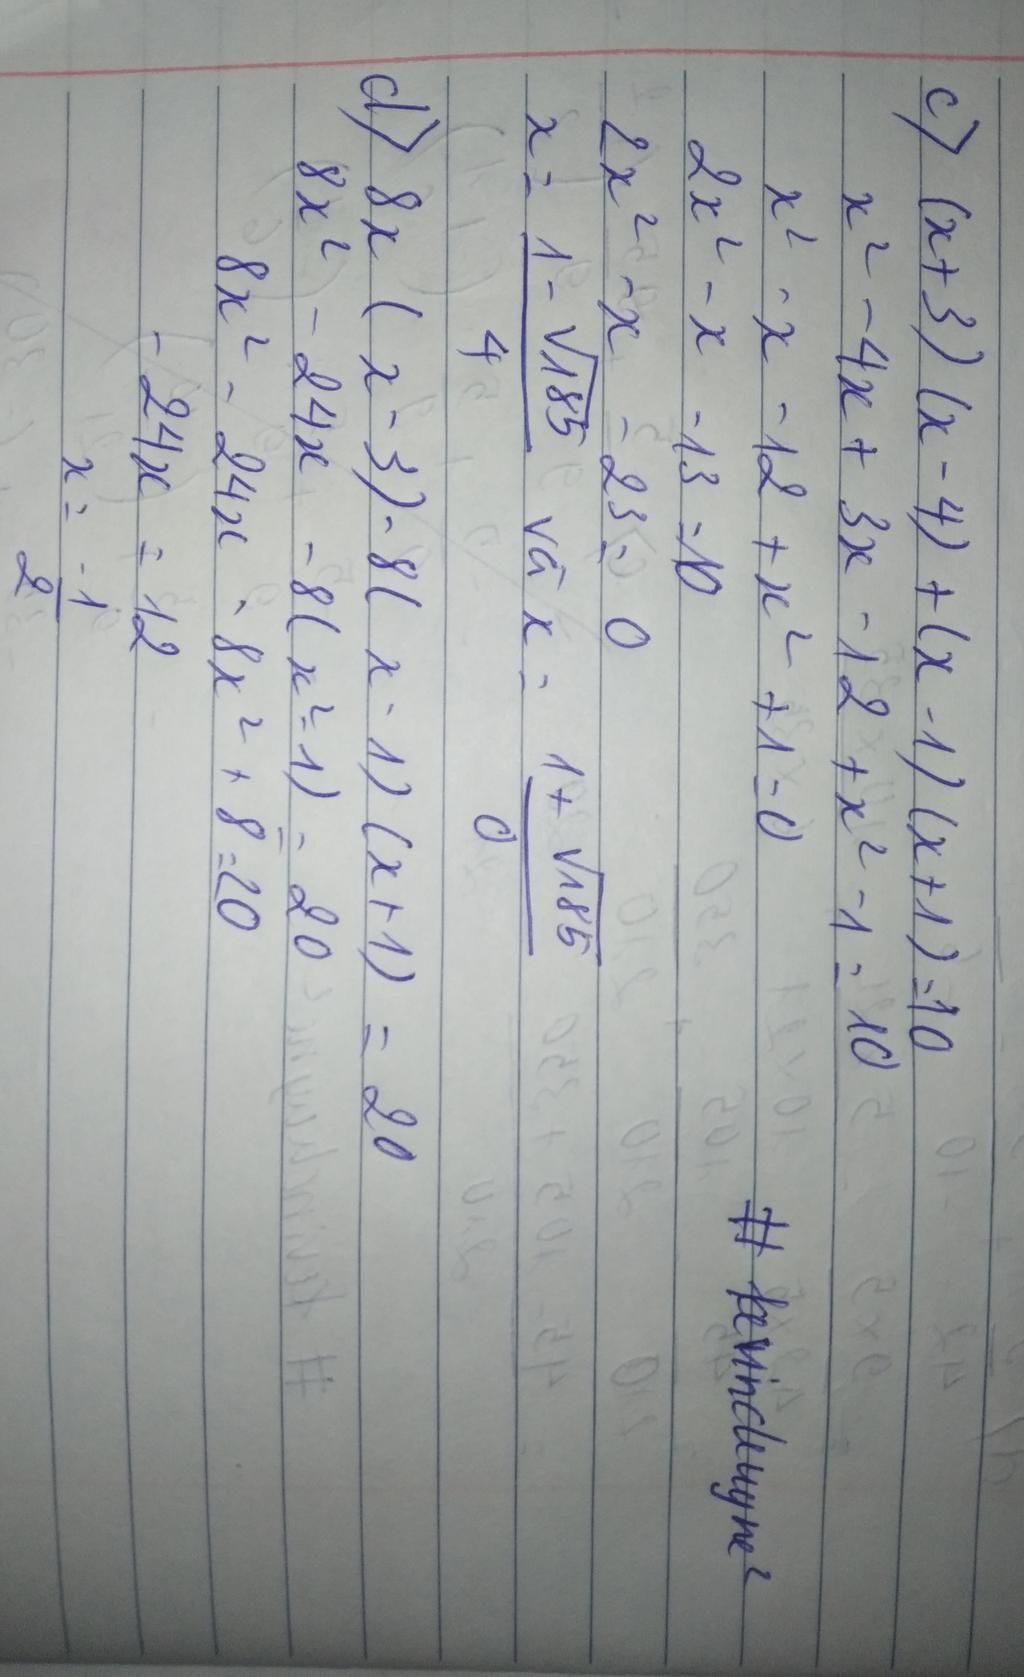 c) (x+3)(x-4)+(x-1)(x+1)=10
x² - 4x + 3x - 12 + x² - 1 = 10
x² - x - 12 + x² + 1 = 0
2x² - x - 13 = 10
2x² - x - 23 = 0
x = 1 - √185 / 4 và x = 1 + √185 / 0
d) 8x (x-3) - 8(x-1)(x+1) = 20
8x² - 24x - 8(x²-1) = 20
8x² - 24x - 8x² + 8 = 20
- 24x = 12
x = -1 / 2